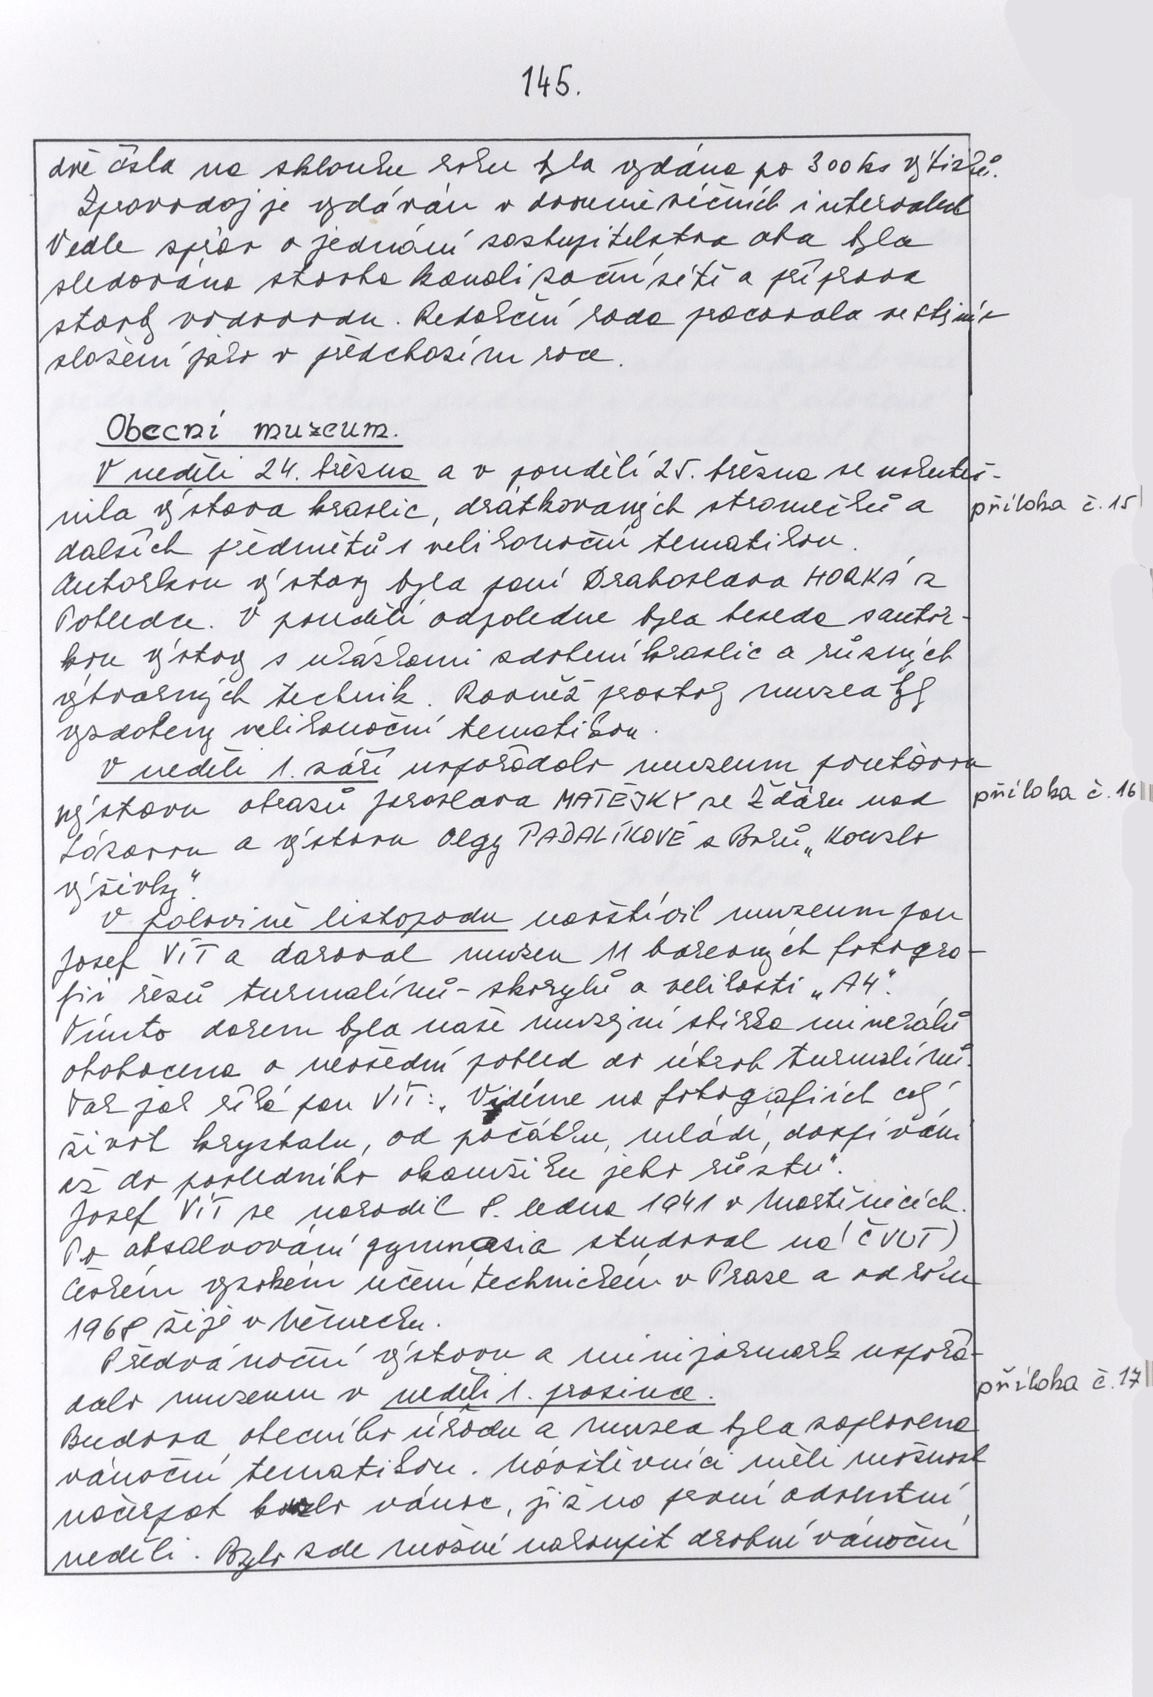 145.
dvě čísla na sklonku roku byla vydána po 300 ks výtisků.
Zpravodaj je vydáván v dvouměsíčních intervalech
Vedle zpráv o jednání zastupitelstva oba byla
sledována stavba kanalizační sítě a příprava
stavby vodovodu. Redakční rada pracovala ve stejném
složení jako v předchozím roce.
Obecní muzeum.
V neděli 24. března a v pondělí 25. března se uskuteč-
nila výstava kraslic, drátkovaných stromečků a
příloha č. 15
dalších předmětů s velikonoční tematikou.
Autorkou výstavy byla paní Drahoslava HORKÁ z
Pohledce. V pondělí odpoledne byla beseda s autor-
kou výstavy s ukázkami zdobení kraslic a různých
výtvarných technik. Rovněž prostory muzea byly
vyzdobeny velikonoční tematikou.
V neděli 1. září uspořádalo muzeum pouťovou
výstavu obrazů Jaroslava MATĚJKY ze Žďáru nad
příloha č. 16
Sázavou a výstavu Olgy PADALÍKOVÉ z Borů „Kouzlo
výšivky".
V polovině listopadu navštívil muzeum pan
Josef VÍT a daroval muzeu 11 barevných fotogra-
fií řezů turmalínů - skorylů o velikosti „A4".
Tímto darem byla naše muzejní sbírka minerálů
obohacena o nevšední pohled do útrob turmalínů.
Tak jak říká pan VÍT: „Vidíme na fotografiích celý
život krystalu, od počátku, mládí, dospívání
až do posledního okamžiku jeho růstu".
Josef VÍT se narodil 8. ledna 1941 v Martinicích.
Po absolvování gymnasia studoval na (ČVUT)
Českém vysokém učení technickém v Praze a od roku
1968 žije v Německu.
Předvánoční výstavu a minijarmark uspořá-
dalo muzeum v neděli 1. prosince.
příloha č. 17
Budova obecního úřadu a muzea byla zaplavena
vánoční tematikou. Návštěvníci měli možnost
načerpat kouzlo vánoc, již na první adventní
neděli. Bylo zde možné nakoupit drobné vánoční